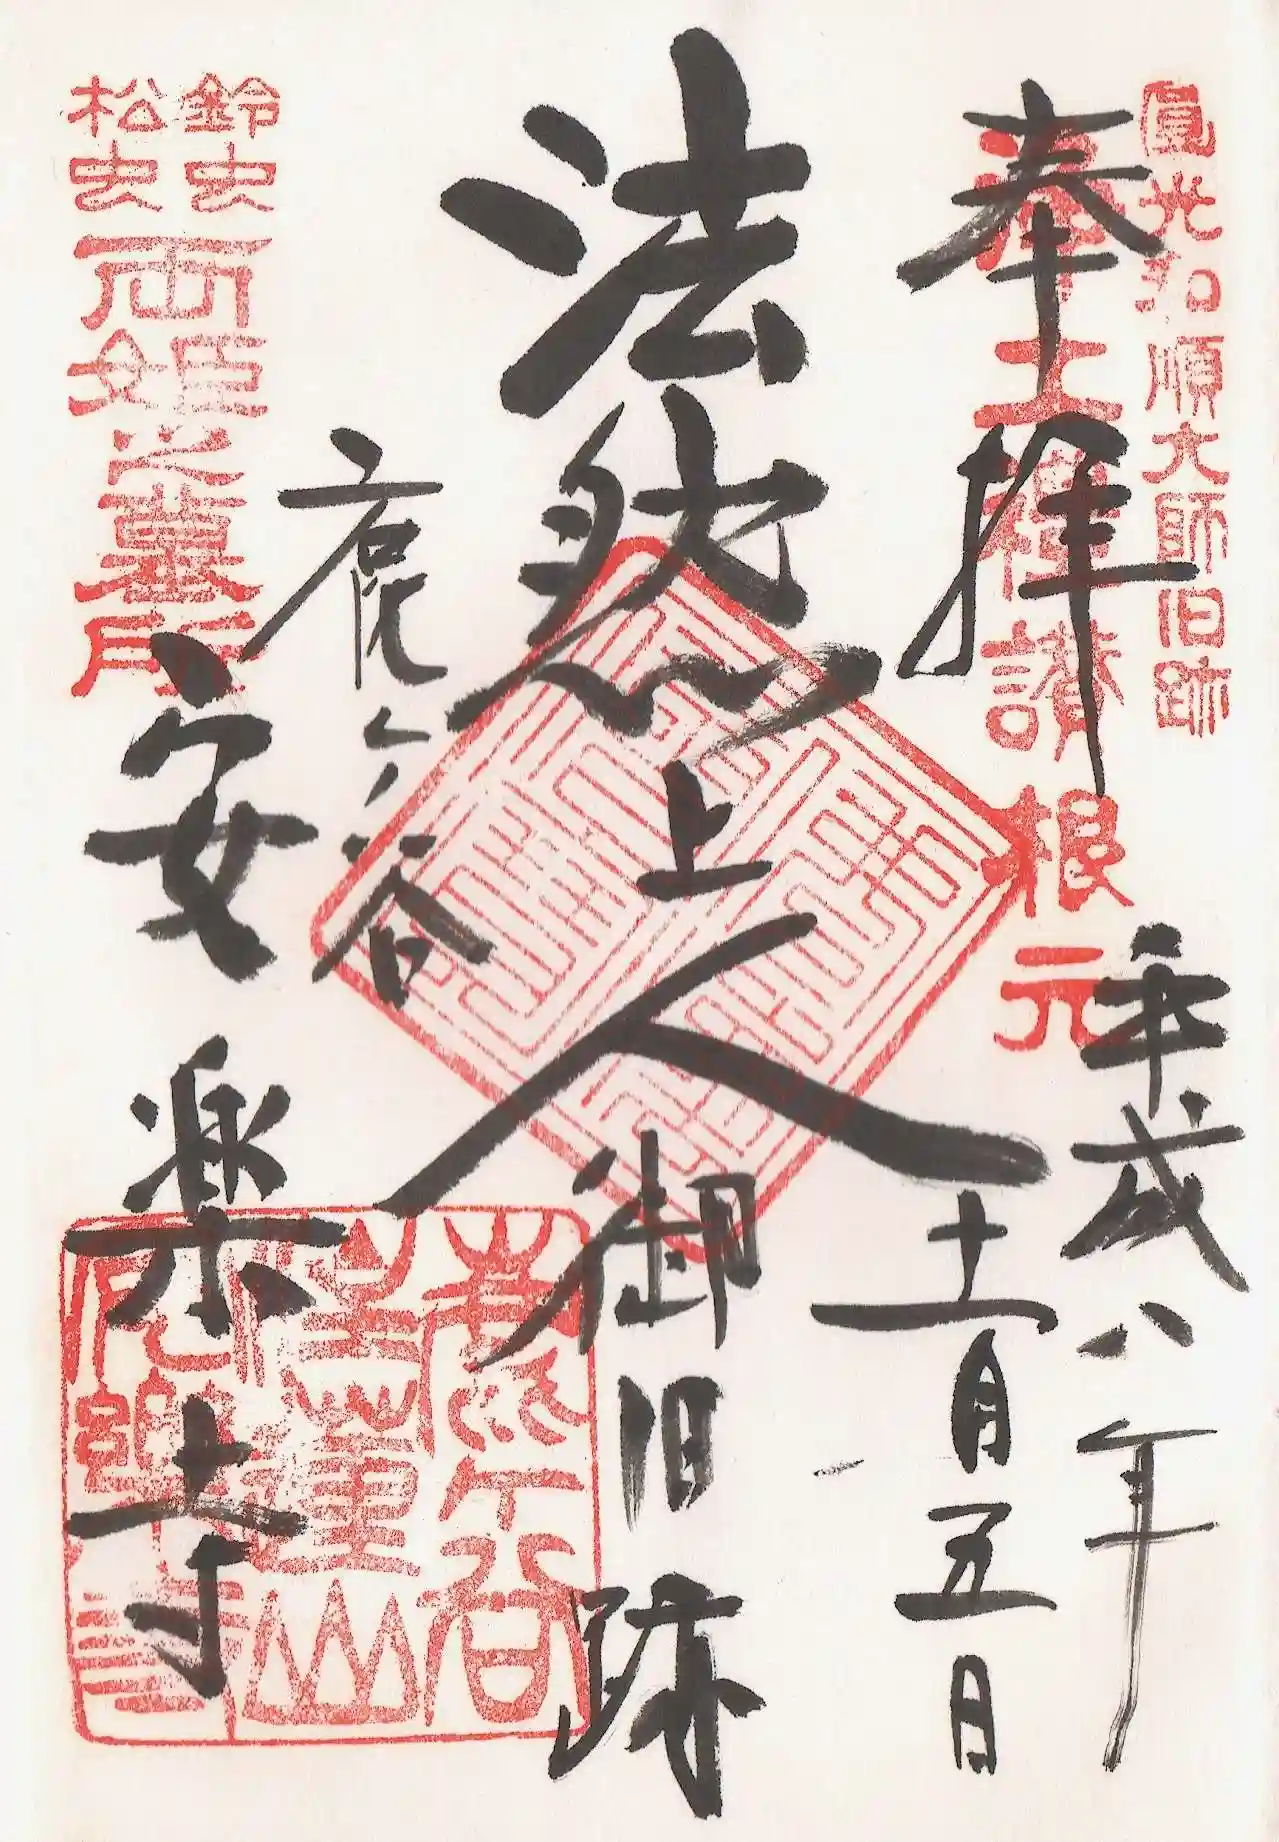 圓光和順大師旧跡
浄土禮讃根元
奉拝
平成八年
十一月五日
法然上人御旧跡
鹿ヶ谷
安楽寺
鈴虫
松虫
両姫之墓所
鹿ケ谷
住蓮山
安樂寺